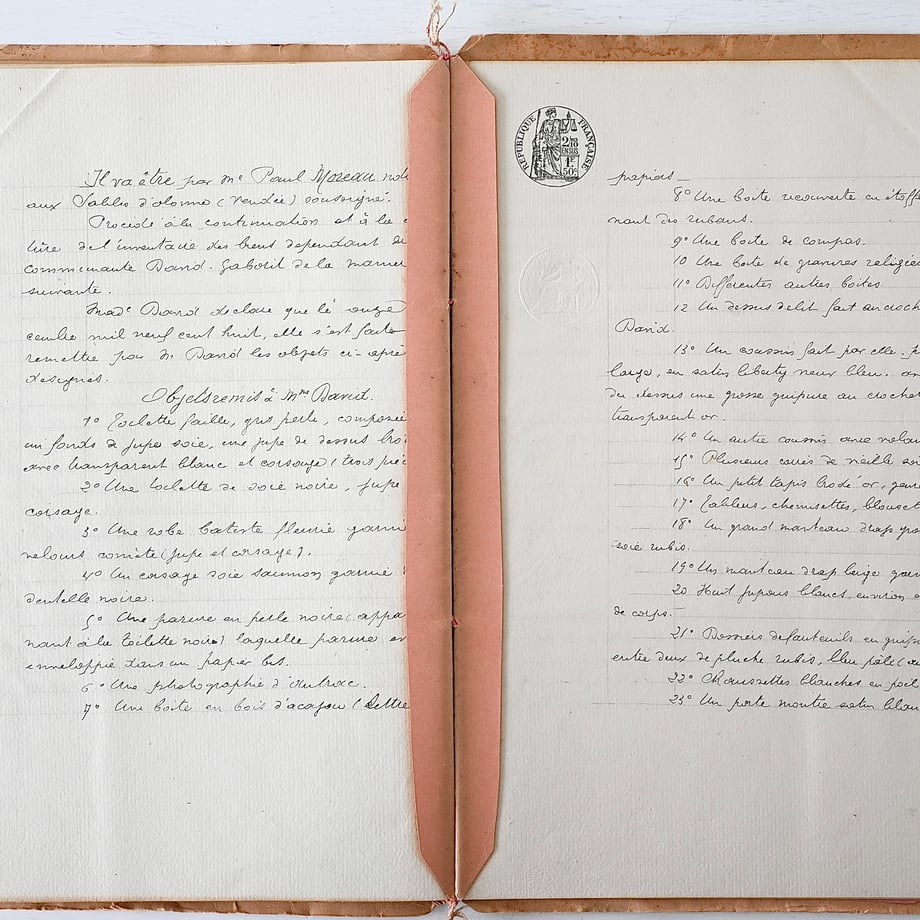 Il va être par Me Paul Moreau not
aux Sables d'olonne (Vendée) soussigné.
Procédé à la continuation et à la c
ture de l'inventaire des biens dépendant de
communauté David. Gaborit de la manière
suivante.
Made David déclare que le onze
cembre mil neuf cent huit, elle s'est faite
remettre par M. David les objets ci-après
designés.
Objets remis à Mme David.
1° Toilette faille, gris perle, composée
un fonds de jupe soie, une jupe de dessus bro
avec transparent blanc et corsage (trois piè
2° Une toilette de soie noire, jupe
corsage.
3° Une robe batiste fleurie garnie
velours comète (jupe et corsage).
4° Un corsage soie saumon garnie
dentelle noire.
5° Une parure en perle noire (appa
nant à la toilette noire) laquelle parure es
enveloppée dans un papier bis.
6° Une photographie d'
7° Une boîte en bois d'acajou (lettre
RÉPUBLIQUE FRANÇAISE
2/10 EN SUS
1F
50c
papiers
8° Une boite recouverte en étoffe
nant des rubans.
9° Une boite de compas.
10 Une boite de gravures religieu
11° Différentes autres boites.
12 Un dessus de lit fait au croch
David.
13° Un coussin fait par elle.
large, en satin liberty vieux bleu.
du dessus une grosse guipure au crochet
transparent or.
14° Un autre coussin avec velou
15° Plusieurs carrés de vieille soi
16° Un petit tapis brodé or, genre
17° Tabliers, chemisettes, blouset
18° Un grand manteau drap gris
soie rubis.
19° Un manteau drap beige garn
20 Huit jupons blancs, environ
de corps.
21° Dossiers de fauteuils en guip
entre deux de peluche rubis, bleu pâle
22° Chaussettes blanches en poil
23° Un porte montre satin blan